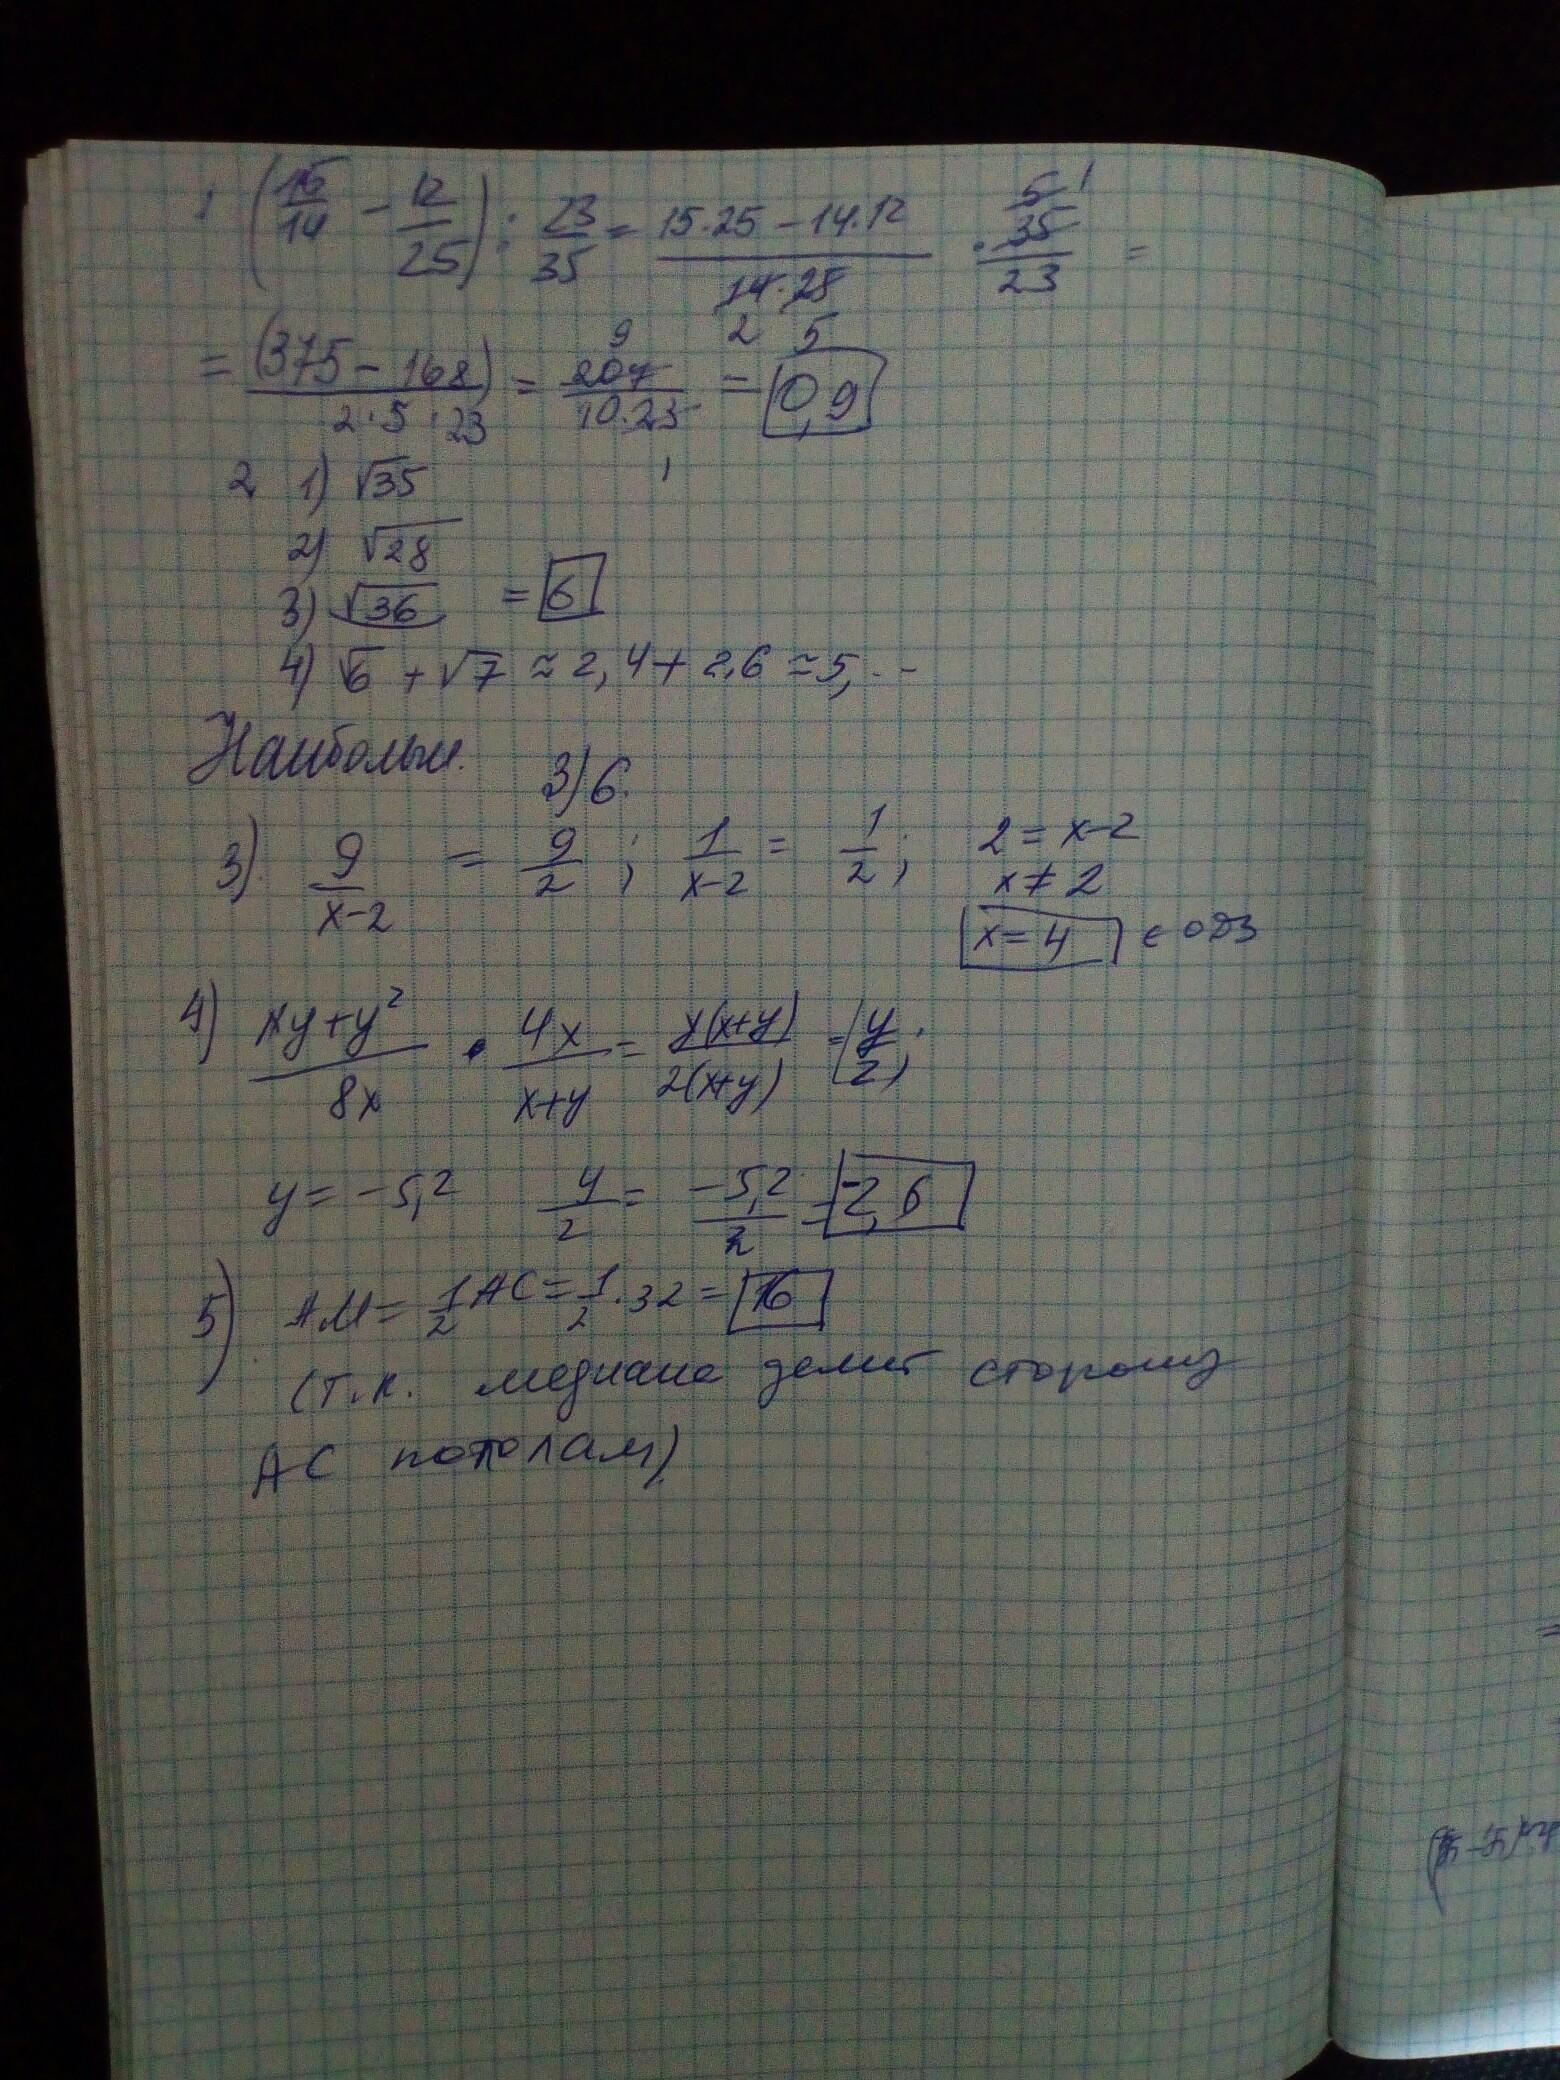 1 (15/14 - 12/25) : 23/35 = (15·25 - 14·12)/(14·25) · 35/23 =
5 1
2 5
= (375 - 168)/(2·5·23) = 207/(10·23) = 0,9
9
2 1) √35
2) √28
3) √36 = 6
4) √6 + √7 ≈ 2,4 + 2,6 ≈ 5, - -
Наибольш.
3) 6.
3) 9/(x-2) = 9/2 ; 1/(x-2) = 1/2 ; 2 = x-2
x ≠ 2
x = 4 ∈ ОДЗ
4) (xy+y²)/8x · 4x/(x+y) = y(x+y)/2(x+y) = y/2 ;
y = -5,2 y/2 = -5,2/2 = -2,6
5) AM = 1/2 AC = 1/2 · 32 = 16
(т.к. медиана делит сторону
AC пополам)